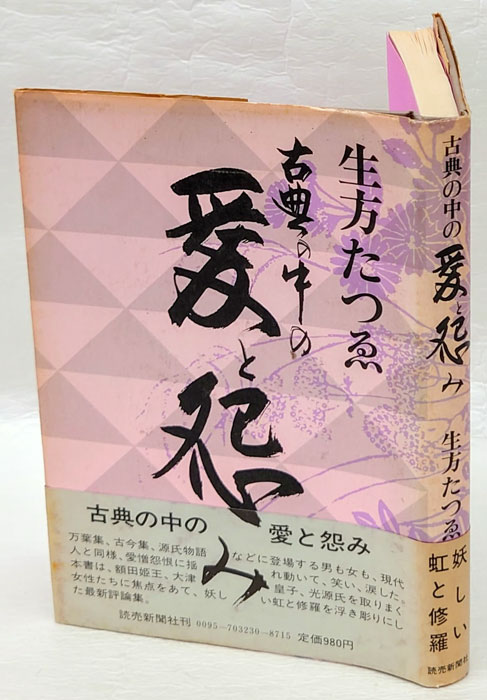 生方たつゑ
古典の中の
愛と怨み
古典の中の 愛と怨み
万葉集、古今集、源氏物語などに登場する男も女も、現代
人と同様、愛憎怨恨に揺れ動いて、笑い、涙した。
本書は、額田姫王、大津皇子、光源氏を取りまく
女性たちに焦点をあて、妖しい虹と修羅を浮き彫りにし
た最新評論集。
読売新聞社刊 0095-703230-8715 定価980円
古典の中の愛と怨み 生方たつゑ
妖しい
虹と修羅
読売新聞社